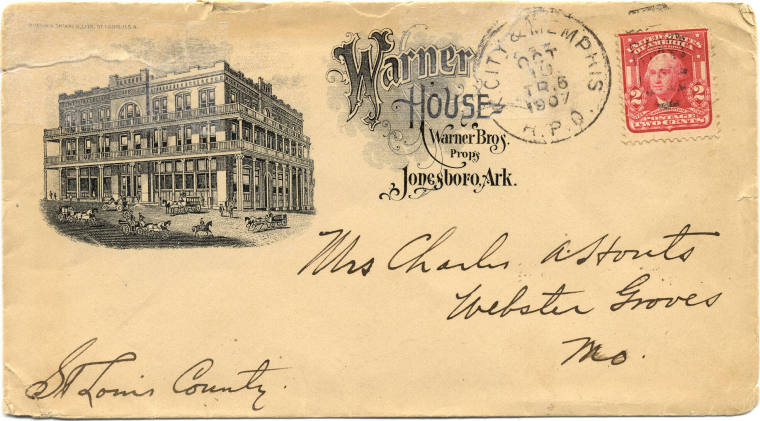 Warner
HOUSE
Warner Bros.
Props
Jonesboro, Ark.
CITY & MEMPHIS
OCT
10
TR.5
1907
R.P.O.
UNITED STATES
OF AMERICA
2 2
POSTAGE
TWO CENTS
Mrs Charles A Houts
Webster Groves
Mo.
St Louis County.